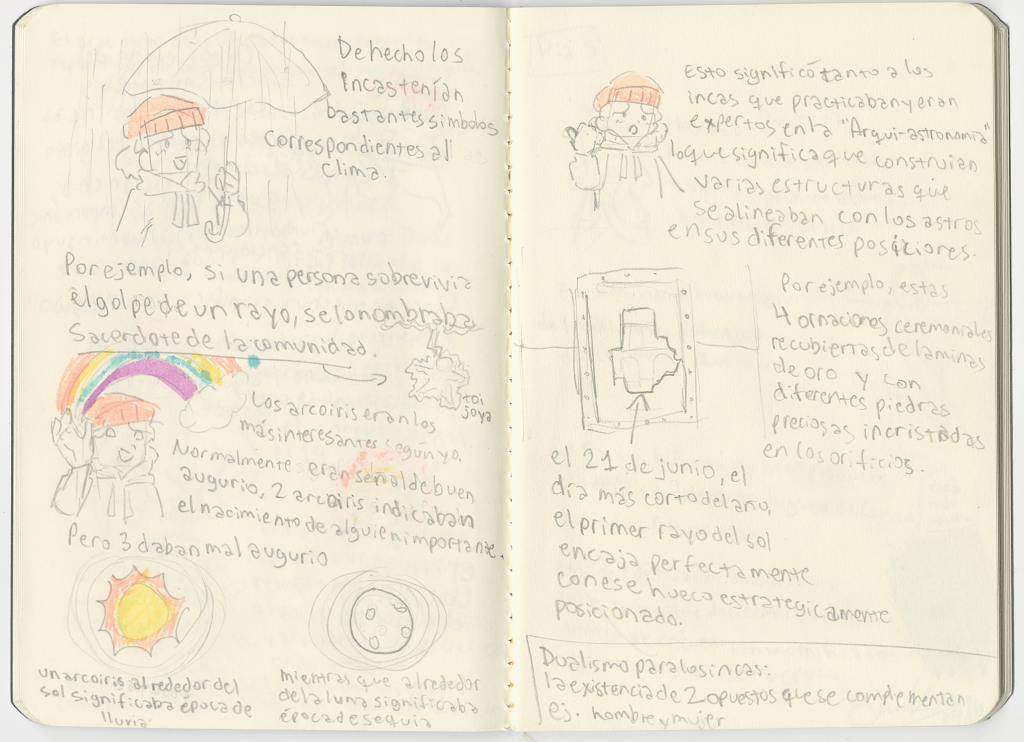 De hecho los
Incas tenían
bastantes simbolos
correspondientes al
clima.
Por ejemplo, si una persona sobrevivia
el golpe de un rayo, se lo nombraba
Sacerdote de la comunidad.
toi
joya
Los arcoiris eran los
más interesantes según yo.
Normalmente eran señal de buen
augurio, 2 arcoiris indicaban
el nacimiento de alguien importante.
Pero 3 daban mal augurio
un arcoiris alrededor del
sol significaba época de
lluvia
mientras que alrededor
de la luna significaba
época de sequia
Esto significó tanto a los
incas que practicaban y eran
expertos en la "Arqui-astronomía"
lo que significa que construían
varias estructuras que
se alineaban con los astros
en sus diferentes posiciones.
Por ejemplo, estas
4 ornaciones ceremoniales
recubiertas de laminas
de oro y con
diferentes piedras
preciosas incristadas
en los orificios.
el 21 de junio, el
día más corto del año,
el primer rayo del sol
encaja perfectamente
con ese hueco estrategicamente
posicionado.
Dualismo para los incas:
la existencia de 2 opuestos que se complementan
ej. hombre y mujer